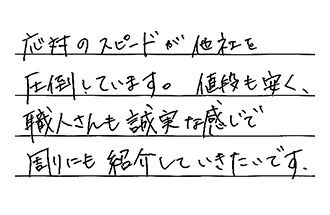 応対のスピードが他社を
圧倒しています。値段も安く、
職人さんも誠実な感じで
周りにも紹介していきたいです。